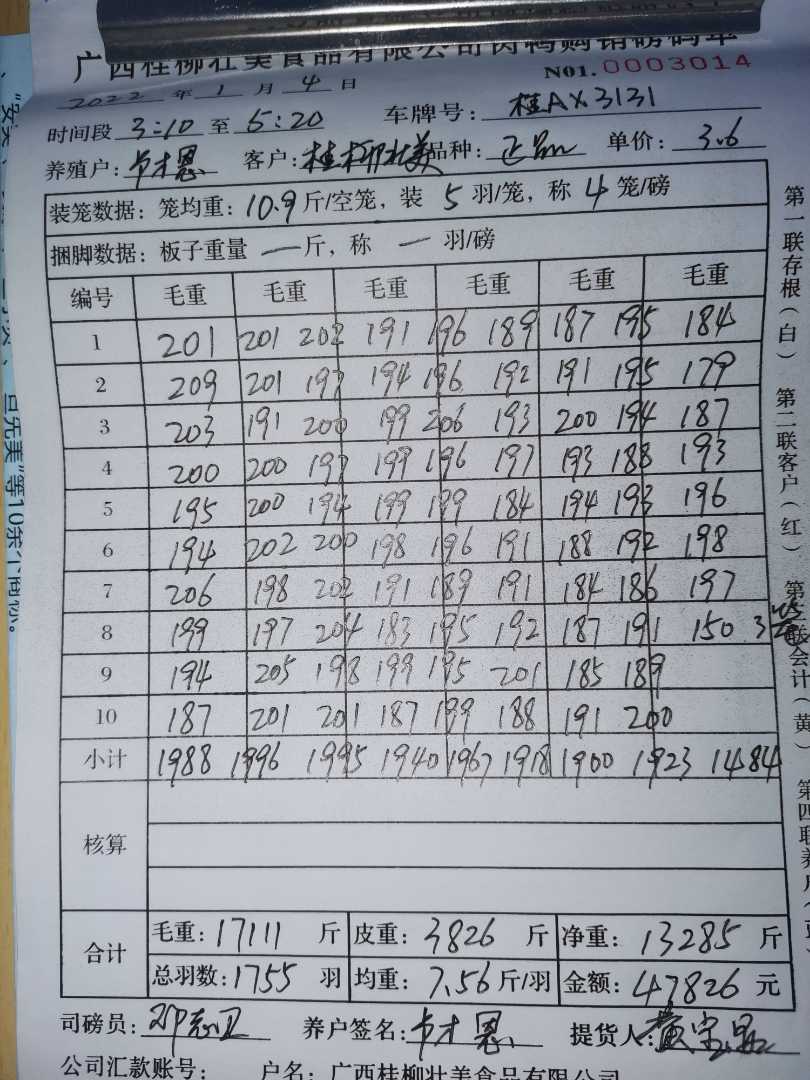 广西桂柳壮美食品有限公司肉鸭购销磅码单
2022 年 1 月 4 日 N01. 0003014
时间段 3:10 至 5:20 车牌号: 桂AX3131
养殖户: 卢才恩 客户: 桂柳壮美 品种: 正品 单价: 3.6
装笼数据: 笼均重: 10.9 斤/空笼, 装 5 羽/笼, 称 4 笼/磅
捆脚数据: 板子重量 — 斤, 称 — 羽/磅
编号 毛重 毛重 毛重 毛重 毛重 毛重
1 201 201 202 191 196 189 187 195 184
2 209 201 197 194 196 192 191 195 179
3 203 191 200 199 206 193 200 194 187
4 200 200 197 199 196 197 193 188 193
5 195 200 194 199 199 184 194 193 196
6 194 202 200 198 196 191 188 192 198
7 206 198 202 191 189 191 184 186 197
8 199 197 204 183 195 192 187 191 150 3笼
9 194 205 198 199 195 201 185 189
10 187 201 201 187 199 188 191 200
小计 1988 1996 1995 1940 1967 1918 1900 1923 1484
核算
合计
毛重: 17111 斤 皮重: 3826 斤 净重: 13285 斤
总羽数: 1755 羽 均重: 7.56 斤/羽 金额: 47826 元
司磅员: 养户签名: 卢才恩 提货人:
公司汇款账号: 户名: 广西桂柳壮美食品有限公司
第一联存根(白) 第二联客户(红) 第三联会计(黄) 第四联养户
先美”等10余个商标。